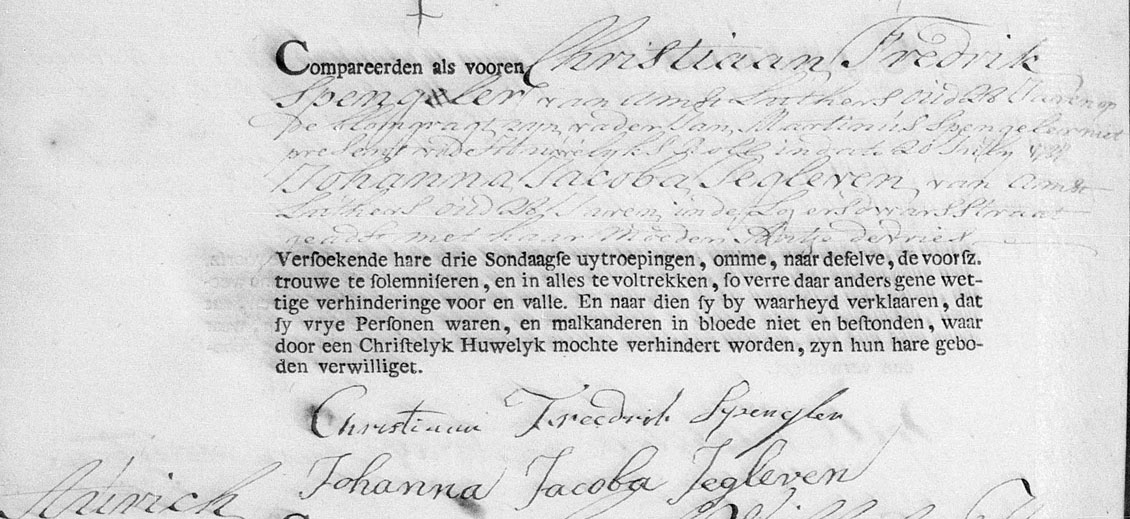 Compareerden als vooren Christiaan Fredrik
Spengeler van Amst Luthers oud 28 Jaren op
de blomgragt zyn vader Jan Martinus Spengeler niet
present
Johanna Jacoba Jegleven van Amst
Luthers oud 28 Jaren in de Loyersdwarsstraat
geadst met haar Moeder Antje de Vries
Verſoekende hare drie Sondaagſe uytroepingen, omme, naar deſelve, de voorſz.
trouwe te ſolemniſeren, en in alles te voltrekken, ſo verre daar anders gene wet-
tige verhinderinge voor en valle. En naar dien ſy by waarheyd verklaaren, dat
ſy vrye Perſonen waren, en malkanderen in bloede niet en beſtonden, waar
door een Chriſtelyk Huwelyk mochte verhindert worden, zyn hun hare gebo-
den verwilliget.
Christiaan Freedrik Spengler
Johanna Jacoba Jegleven
Aurich